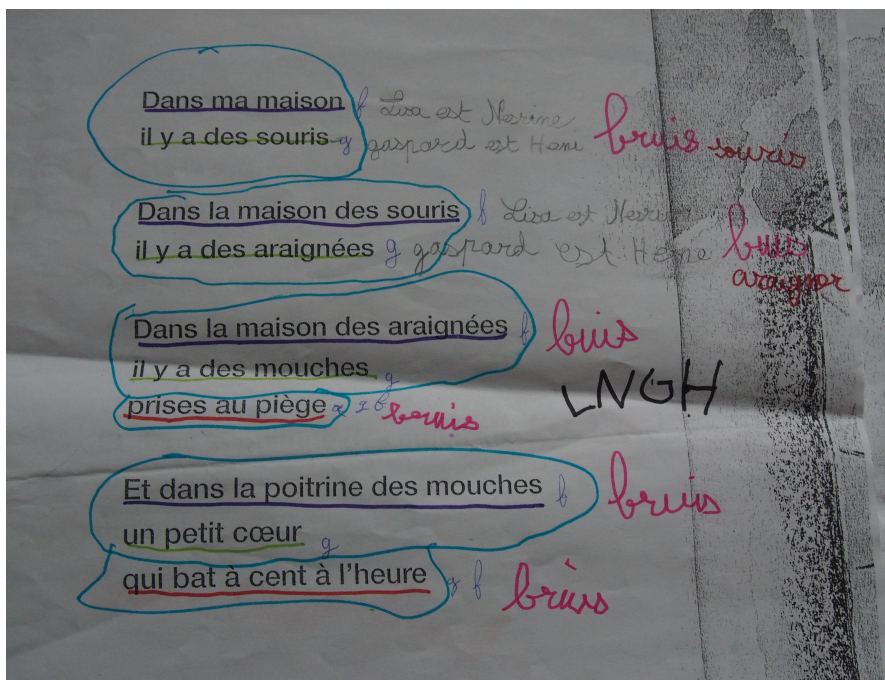 Dans ma maison f Lisa est Nesrine
il y a des souris g gaspard est Hani bruis souris
Dans la maison des souris f Lisa est Nesrin
il y a des araignées g gaspard est Hene bruis
Dans la maison des araignées f buis
il y a des mouches g
LNGH
prises au piège g f beruis
Et dans la poitrine des mouches f bruis
un petit cœur g
qui bat à cent à l'heure g f bruis